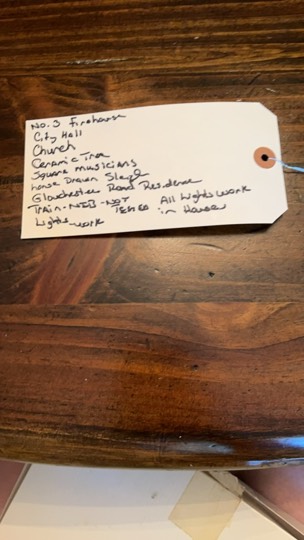 No. 3 Firehouse
City Hall
Church
Ceramic Tree
Square musicians
horse Drawn Sleigh
Glouchester Road Residence
Train - NIB - NOT TESTED All Lights work in Houses
Lights - work